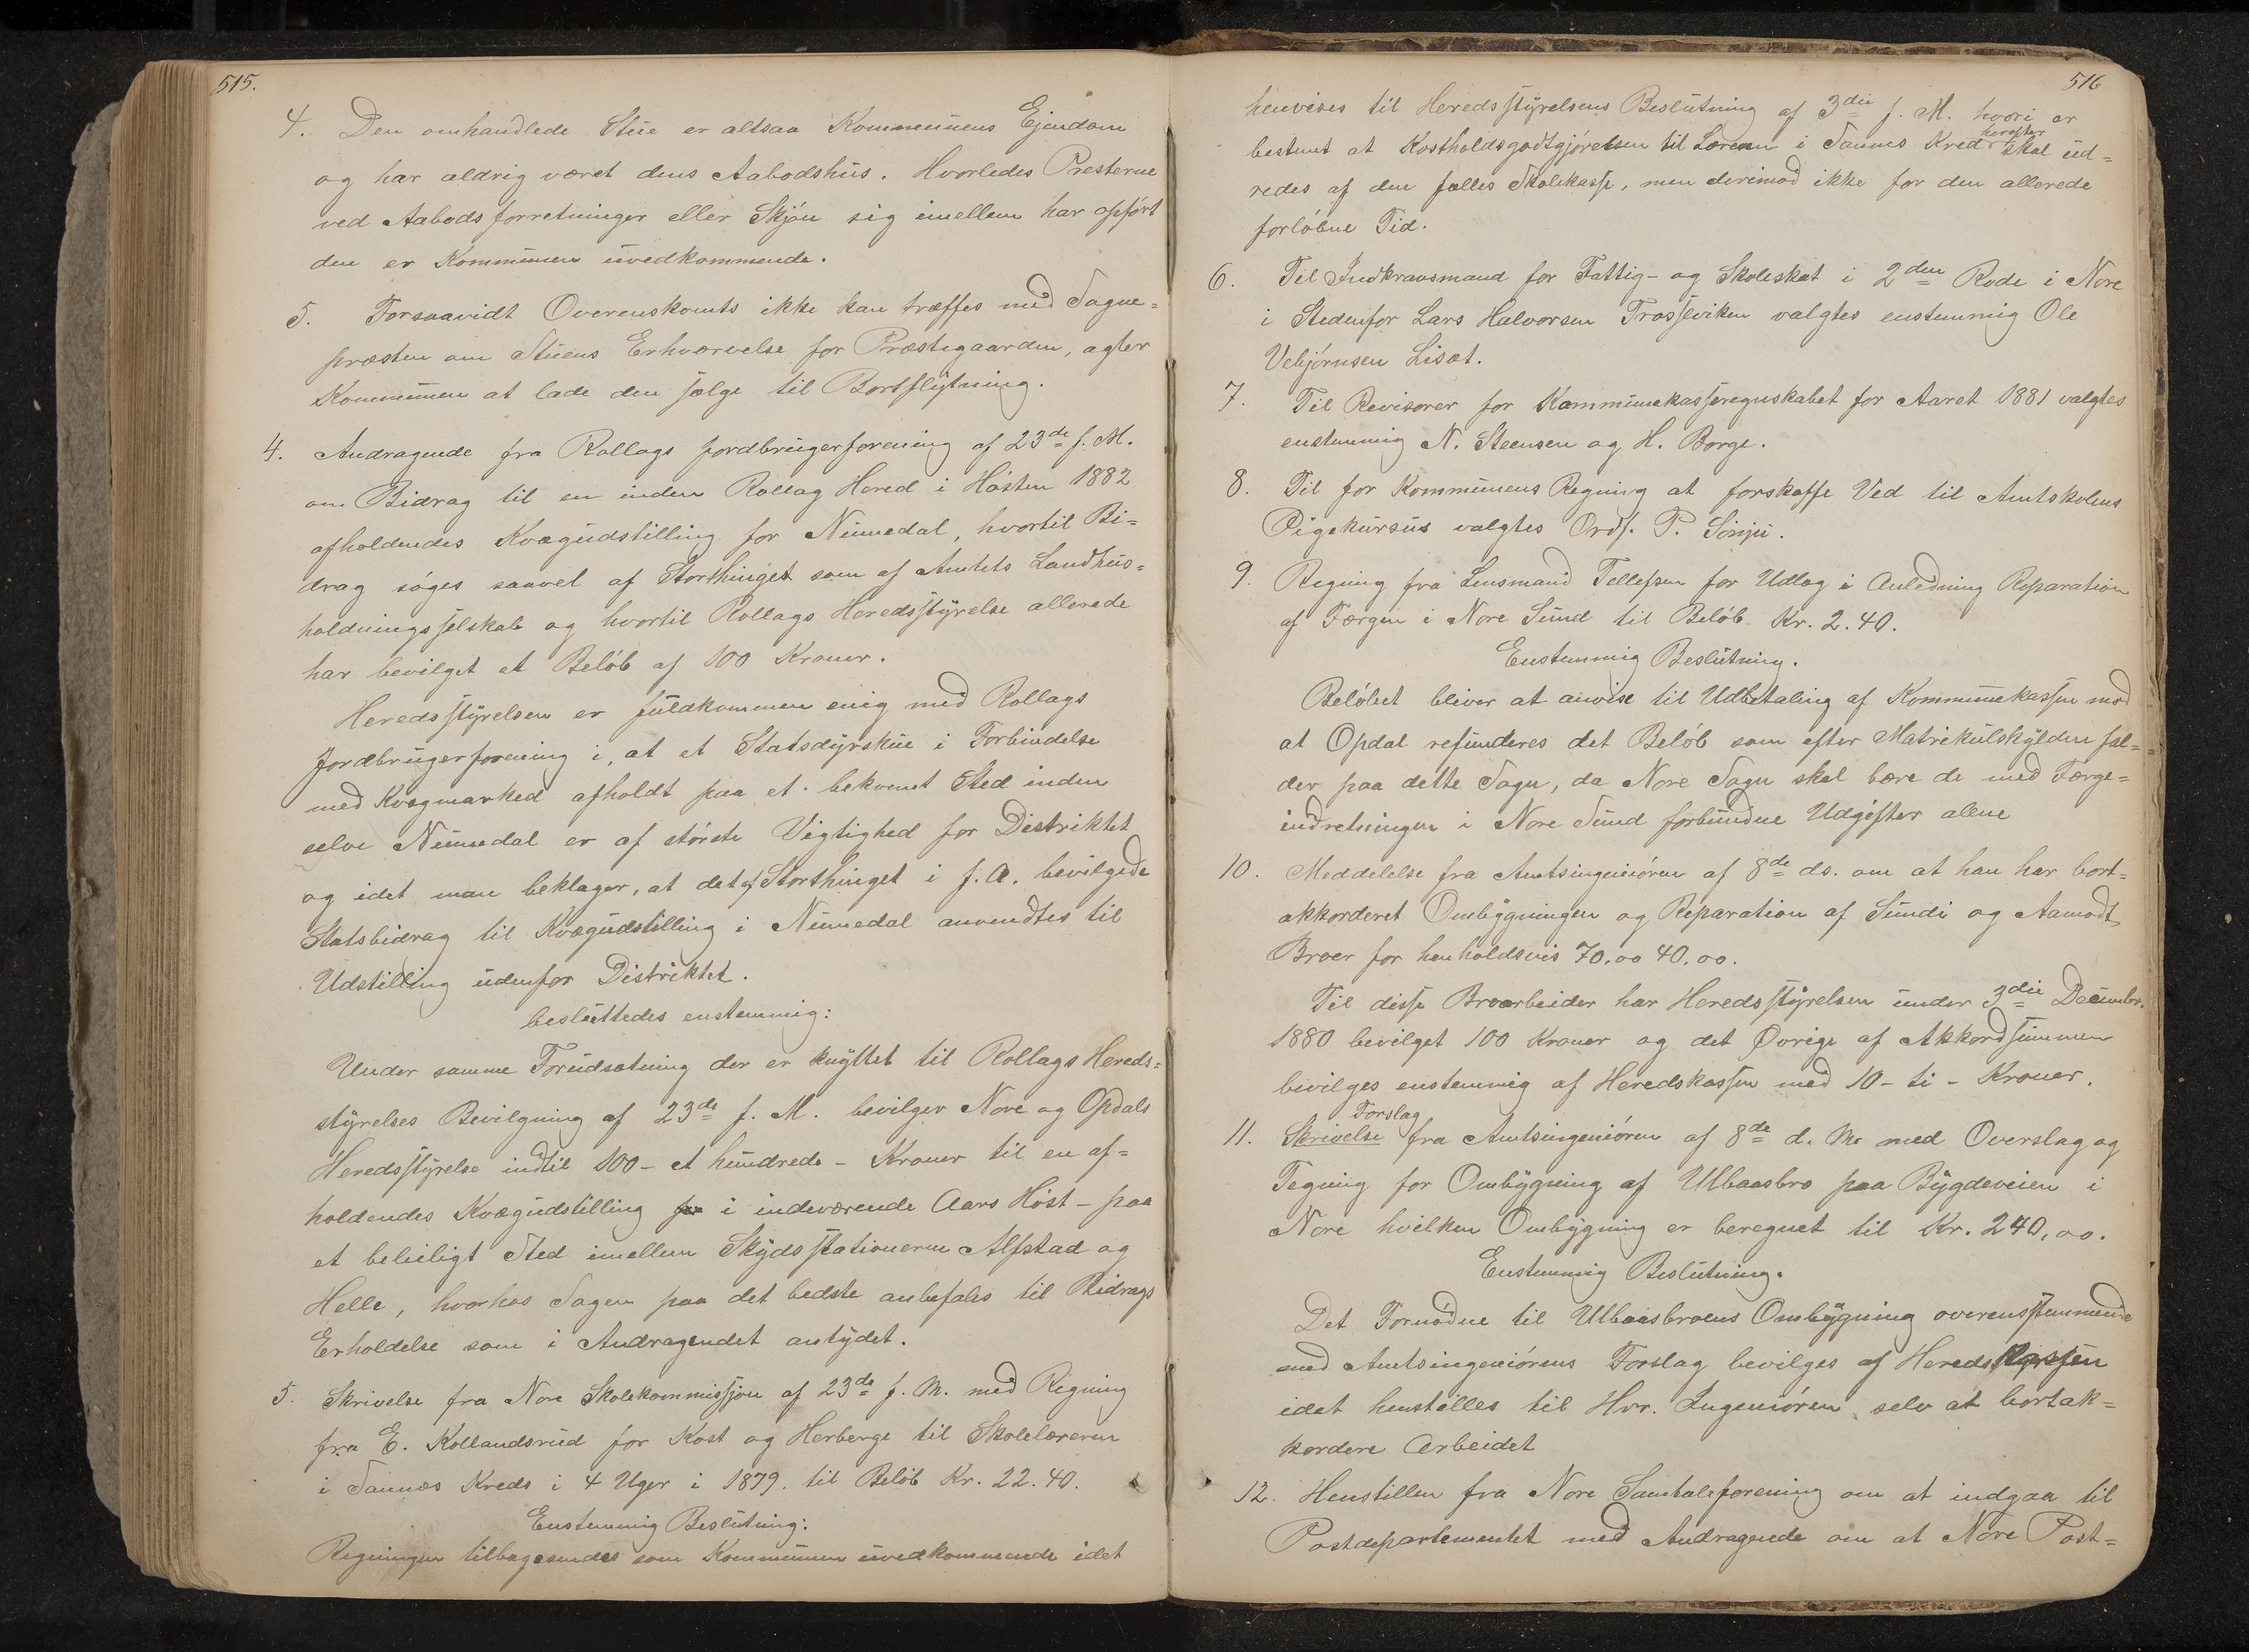 515.
4. Den omhandlede Stue er altsaa Kommunens Ejendom
og har aldrig været dens Aabodshus. Hvorledes Presterne
ved Aabodsforretninger eller Skjøn sig imellem har opført
den er Kommunen uvedkommende.
5. Forsaavidt Overenskomts ikke kan træffes med Sogne-
præsten om Stuens Erhvervelse for Præstegaarden, agter
Kommunen at lade den sælge til Bortflytning.
4. Andragende fra Rollags Jordbrugerforening af 23de f. M.
om Bidrag til en inden Rollag Hered i Høsten 1882
afholdendes Kvægudstilling for Numedal, hvortil Bi-
drag søges saavel af Storthinget som af Amtets Landhus-
holdningsselskab og hvortil Rollags Heredsstyrelse allerede
har bevilget et Beløb af 100 Kroner.
Heredsstyrelsen er fuldkommen enig med Rollags
Jordbrugerforening i, at et Statsdyrskue i Forbindelse
med Kvægmarked afholdt paa et bekvemt Sted inden
selve Numedal er af største Vigtighed for Distriktet
og idet man beklager, at det af Storthinget i f. A. bevilgede
Statsbidrag til Kvægudstilling i Numedal anvendtes til
Udstilling udenfor Distriktet.
besluttedes enstemmig:
Under samme Forudsætning der er knyttet til Rollags Hereds-
styrelses Bevilgning af 23de f. M. bevilger Nore og Opdals
Heredsstyrelse indtil 100 - et hundrede - Kroner til en af-
holdendes Kvægudstilling i indeværende Aars Høst - paa
et beleiligt Sted imellem Skydsstationerne Alfstad og
Helle, hvorhos Sagen paa det bedste anbefales til Bidrags
Erholdelse som i Andragendet antydet.
5. Skrivelse fra Nore Skolekommissjon af 23de f. M. med Regning
fra E. Kollandsrud for Kost og Herberge til Skolelæreren
i Sannes Kreds i 4 Uger i 1879. til Beløb Kr. 22.40.
Enstemmig Beslutning:
Regningen tilbagesendes som Kommunen uvedkommende idet
516
henvises til Heredsstyrelsens Beslutning af 3die f. M. hvori er
bestemt at Kostholdsgodtgjørelsen til Læreren i Sannes Kreds herefter skal ud-
redes af den fælles Skolekasse, men derimod ikke for den allerede
forløbne Tid.
6. Til Indkravsmand for Fattig- og Skoleskat i 2den Rode i Nore
i Stedenfor Lars Halvorsen Trosseviken valgtes enstemmig Ole
Vebjørnsen Lisæt.
7. Til Revisorer for Kommunekasseregnskabet for Aaret 1881 valgtes
enstemmig N. Steensen og H. Borge.
8. Til for Kommunens Regning at forskaffe Ved til Amtskolens
Pigekursus valgtes Ordf. P. Sønju.
9. Regning fra Lensmand Tellefsen for Udlæg i Anledning Reparation
af Færgen i Nore Sund til Beløb Kr. 2.40.
Enstemmig Beslutning.
Beløbet bliver at anvise til Udbetaling af Kommunekassen mod
at Opdal refunderes det Beløb som efter Matrikulskylden fal-
der paa dette Sogn, da Nore Sogn skal bære de med Færge-
indretningen i Nore Sund forbundne Udgifter alene
10. Meddelelse fra Amtsingeniøren af 8de ds. om at han har bort-
akkorderet Ombygningen og Reparation af Sundi og Aamodt
Broer for henholdsvis 70,00 40,00.
Til disse Broarbeider har Heredsstyrelsen under 3die Decembr.
1880 bevilget 100 Kroner og det Øvrige af Akkordsummen
bevilges enstemmig af Heredskassen med 10 - ti - Kroner.
11. Skrivelse Forslag fra Amtsingeniøren af 8de d. M. med Overslag og
Tegning for Ombygning af Ulbaasbro paa Bygdeveien i
Nore hvilken Ombygning er beregnet til Kr. 240,00.
Enstemmig Beslutning.
Det Fornødne til Ulbaasbroens Ombygning overensstemmende
med Amtsingeniørens Forslag bevilges af Heredskassen
idet henstilles til Hrr. Ingeniøren selv at bortak-
kordere Arbeidet
12. Henstillen fra Nore Samtaleforening om at indgaa til
Postdepartementet med Andragende om at Nore Post-